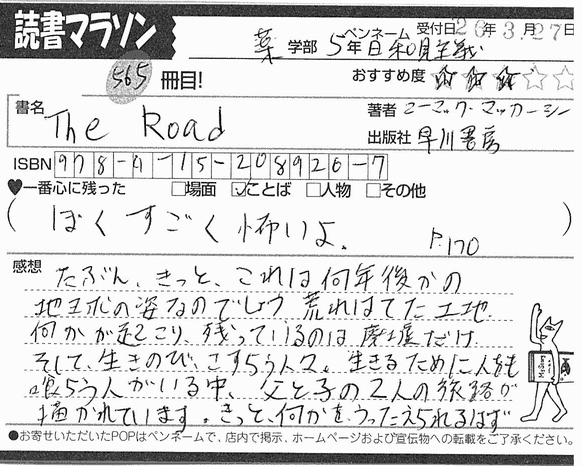 読書マラソン
ペンネーム 受付日26年3.月27日
薬 学部 5年 日和見主義
565 冊目!
おすすめ度 ★★★☆☆
書名 The Road
著者 コーマック・マッカーシー
出版社 早川書房
ISBN 978-4-15-208926-7
♥一番心に残った □場面 ☑ことば □人物 □その他
(ぼくすごく怖いよ。 P.170)
感想
たぶん、きっと、これは何年後かの
地球の姿なのでしょう 荒れはてた土地
何かが起こり、残っているのは廃墟だけ
そして、生きのび、こすらう人々。生きるために人をも
喰らう人がいる中、父と子の2人の旅路が
描かれています。きっと、何かを、うったえられるはず
●お寄せいただいたPOPはペンネームで、店内で掲示、ホームページおよび宣伝物への転載をご了承ください。